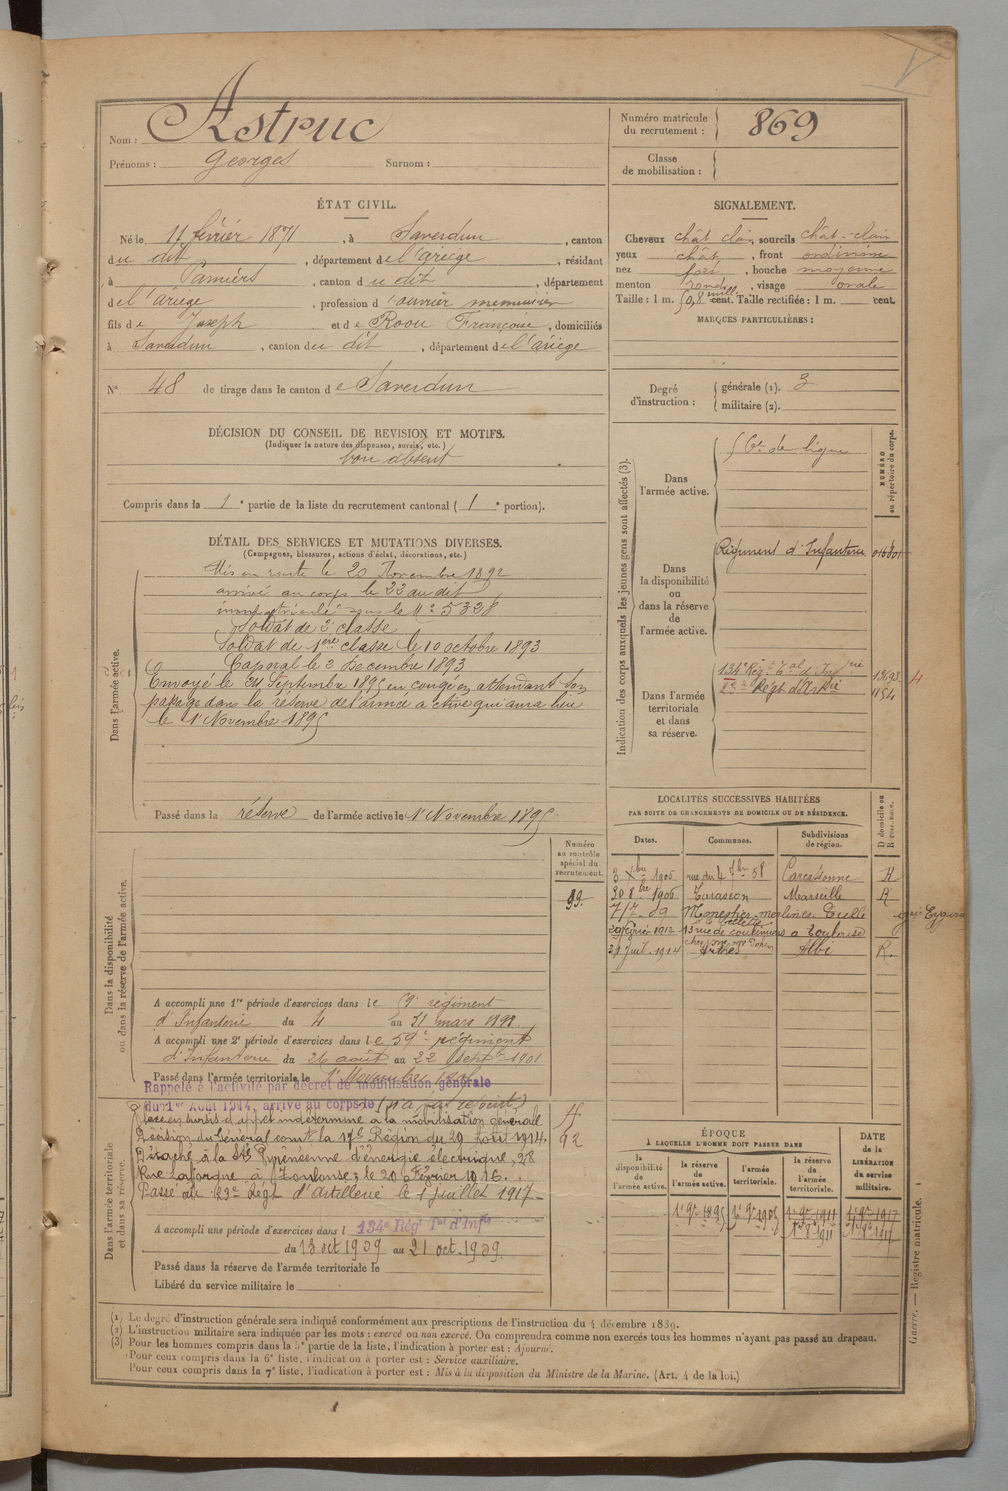 Nom : Astruc
Prénoms : Georges Surnom :
Numéro matricule du recrutement : 869
Classe de mobilisation :
ÉTAT CIVIL.
Né le 11 février 1871, à Saverdun, canton
du dit, département de l'ariège, résidant
à Pamiers, canton du dit, département
de l'ariège, profession d'ouvrier menuisier
fils de Joseph et de Roou Françoise, domiciliés
à Saverdun, canton du dit, département de l'ariège
N° 48 de tirage dans le canton de Saverdun
DÉCISION DU CONSEIL DE REVISION ET MOTIFS.
(Indiquer la nature des dispenses, sursis, etc.)
bon absent
Compris dans la 1e partie de la liste du recrutement cantonal (1e portion).
SIGNALEMENT.
Cheveux chât clair, sourcils chât-clair
yeux chât, front ordinaire
nez , bouche moyenne
menton rond, visage ovale
Taille : 1 m. cent. Taille rectifiée : 1 m. cent.
MARQUES PARTICULIÈRES :
Degré d'instruction : générale (1). 3
militaire (2).
DÉTAIL DES SERVICES ET MUTATIONS DIVERSES.
(Campagnes, blessures, actions d'éclat, décorations, etc.)
Dans l'armée active.
Mis en route le 20 Novembre 1892
arrivé au corps le 22 au dit
immatriculé sous le N° 5328
Soldat de 2e classe
Soldat de 1ère classe le 10 octobre 1893
Caporal le 2 Decembre 1893
Envoyé le 24 Septembre 1895 en congé en attendant son
passage dans la réserve de l'armée active qui aura lieu
le 1 Novembre 1895
Passé dans la réserve de l'armée active le 1 Novembre 1895
Indication des corps auxquels les jeunes gens sont affectés (3).
NUMÉRO au répertoire du corps.
Dans l'armée active.
de ligne
Dans la disponibilité ou dans la réserve de l'armée active.
Régiment d'Infanterie
Dans l'armée territoriale et dans sa réserve.
134e Rég. Tal d'Infrie 13693
23e Régt d'Artrie 1154
LOCALITÉS SUCCESSIVES HABITÉES
PAR SUITE DE CHANGEMENTS DE DOMICILE OU DE RÉSIDENCE.
Dates. Communes. Subdivisions de région. D domicile ou R résidence.
3 Xbre 1905 rue du 4 7bre 58 Carcassonne R
30 8bre 1906 Tarascon Marseille R
Monestier-merlines Tulle
29 février 1912 13 rue de Toulouse
31 Juil. 1914 Albi R.
Dans la disponibilité ou dans la réserve de l'armée active.
Numéro au contrôle spécial du recrutement.
99.
A accompli une 1re période d'exercices dans le 9e régiment
d'Infanterie du 4 au 31 mars 1898
A accompli une 2e période d'exercices dans le 59e régiment
d'Infanterie du 26 août au 22 Septbre 1901
Passé dans l'armée territoriale le 1 Novembre 1905
Rappelé à l'activité par décret de mobilisation générale
du 1er Août 1914, arrivé au corps le (n'a pas rejoint)
Dans l'armée territoriale et dans sa réserve.
Placé en sursis d'appel indéterminé à la mobilisation générale
Décision du Général comt la 17e Région du 29 Août 1914.
Détaché à la Sté Pyrénéenne d'énergie électrique, 28
Rue Laforgue à Toulouse, le 20 Février 1916.
Passé au 23e Régt d'artillerie le 1 juillet 1917
A accompli une période d'exercices dans l 134e Régt Tal d'Infie
du 13 oct 1909 au 21 oct. 1909
Passé dans la réserve de l'armée territoriale le
Libéré du service militaire le
ÉPOQUE
À LAQUELLE L'HOMME DOIT PASSER DANS
DATE de la LIBÉRATION du service militaire.
la disponibilité de l'armée active. la réserve de l'armée active. l'armée territoriale. la réserve de l'armée territoriale.
1e 9bre 1895 1e 9bre 1905 1e 9bre 1911 1e 9bre 1917
(1) Le degré d'instruction générale sera indiqué conformément aux prescriptions de l'instruction du 4 décembre 1889.
(2) L'instruction militaire sera indiquée par les mots : exercé ou non exercé. On comprendra comme non exercés tous les hommes n'ayant pas passé au drapeau.
(3) Pour les hommes compris dans la 5e partie de la liste, l'indication à porter est : Ajourné.
Pour ceux compris dans la 6e liste, l'indication à porter est : Service auxiliaire.
Pour ceux compris dans la 7e liste, l'indication à porter est : Mis à la disposition du Ministre de la Marine. (Art. 4 de la loi.)
Guerre. — Registre matricule.